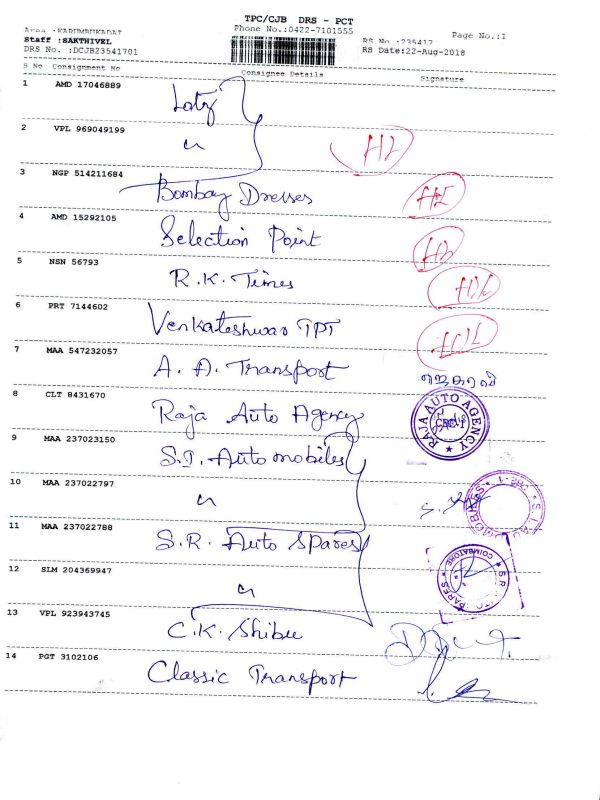 TPC/CJB DRS - PCT
Phone No.:0422-7101555
Page No.:1
Area :KARUMBUKADAI
Staff :SAKTHIVEL
RS No :235417
DRS No. :DCJB23541701
RS Date:22-Aug-2018
S No Consignment No Consignee Details Signature
1 AMD 17046889
2 VPL 969049199
3 NGP 514211684 Bombay Dresses
4 AMD 15292105 Selection Point
5 NSN 56793 R.K. Times
6 PRT 7144602 Venkateshwar TPT
7 MAA 547232057 A. A. Transport
8 CLT 8431670 Raja Auto Agency
RAJA AUTO AGENCY
9 MAA 237023150 S.I. Automobiles
10 MAA 237022797
11 MAA 237022788 S.R. Auto Spares
COIMBATORE
12 SLM 204369947
13 VPL 923943745 C.K. Shibu
14 PGT 3102106 Classic Transport